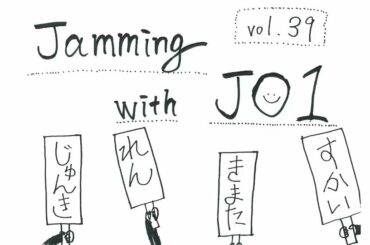 Jamming
vol.39
with JO1
じゅんき
れん
きまた
すかい